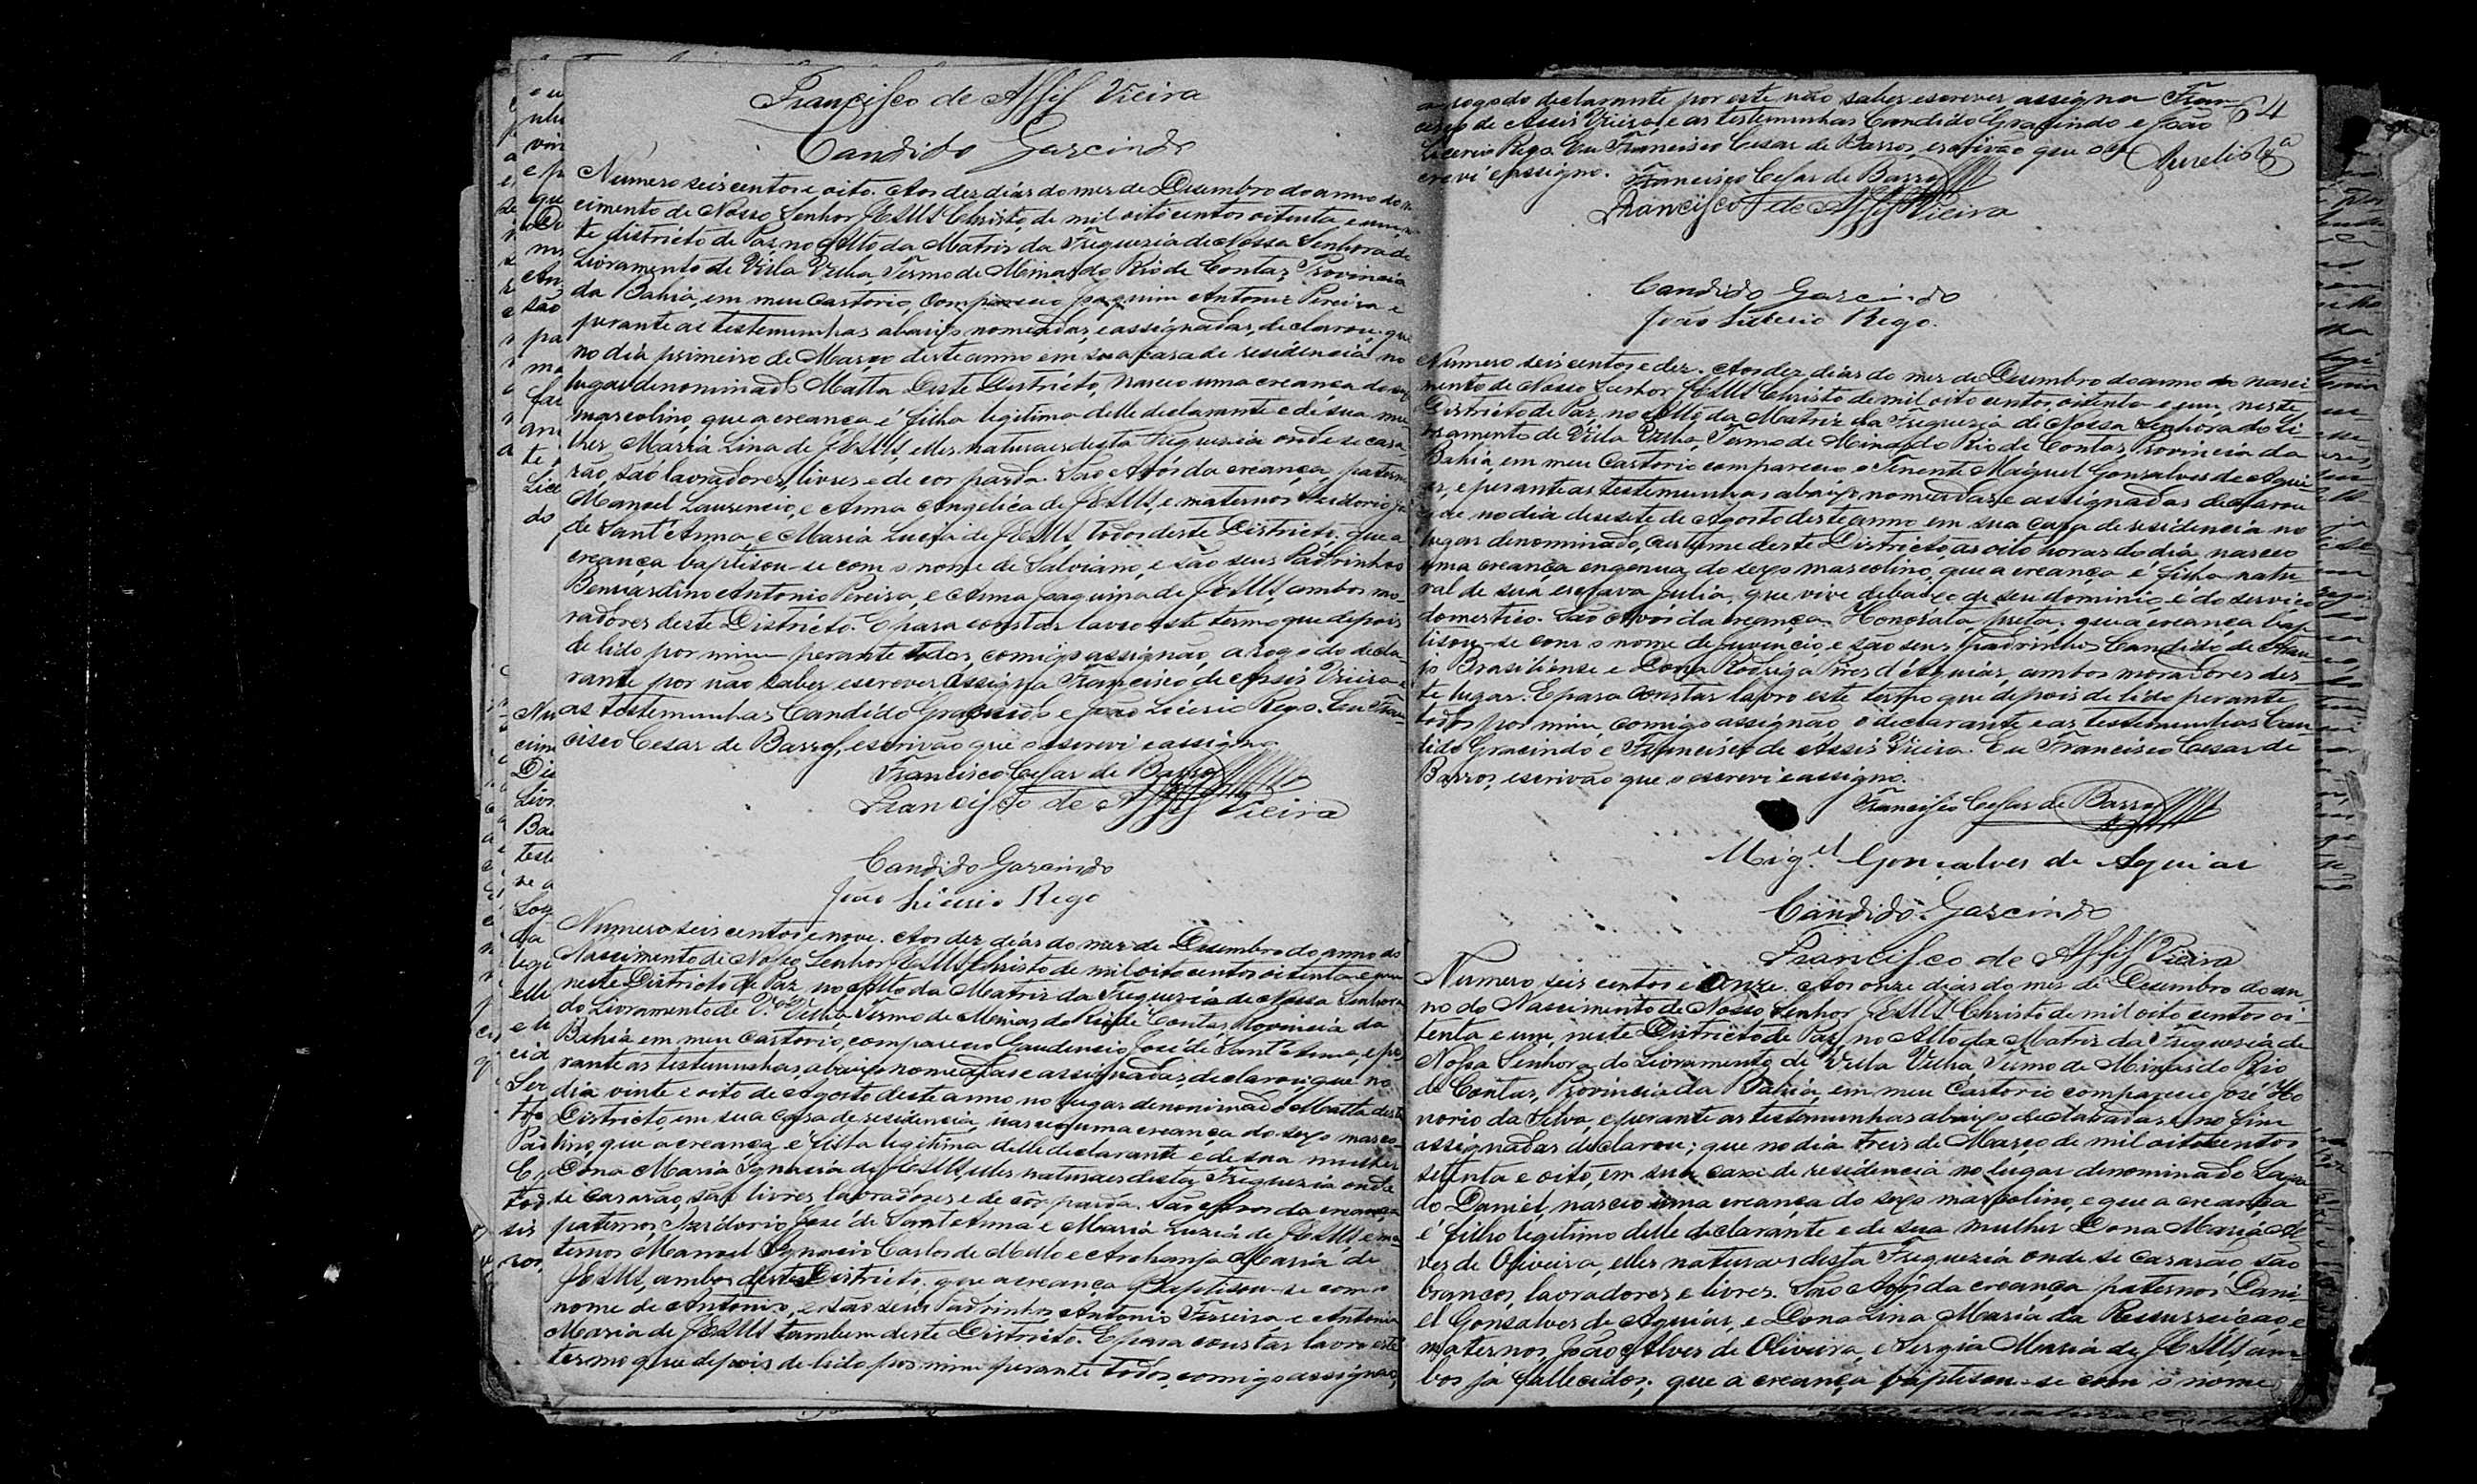 Francisco de Assis Vieira
Candido Garcindo
Numero seis centos e oito. Aos dez dias do mes de Desembro do anno do
cimento de Nosso Senhor JESUS Christo, de mil oito centos oitenta e um,
te districto de Paz no Alto da Matriz da Freguezia de Nossa Senhora do
Livramento de Villa Velha, Termo de Minas do Rio de Contas, Provincia
da Bahia, em meu Cartorio, compareceo Joaquim Antonio Pereira e
perante as testemunhas abaixo nomeadas, e assignadas, declarou: que
no dia primeiro de Março deste anno em sua casa de residencia no
lugar denominado Matta deste Districto, nasceo uma creança do sexo
mascolino, que a creança é filha legitima delle declarante e de sua mu
lher Maria Lina de JESUS, elles naturaes desta Freguezia onde se casa
rão, são lavradores, livres e de cor parda. São Avós da creança, paternos
Manoel Laurencio, e Anna Angelica de JESUS, e maternos Isidorio
de Sant'Anna, e Maria Luzia de JESUS, todos deste Districto. que a
creança baptisou-se com o nome de Salviano, e são seus Padrinhos
Bernardino Antonio Pereira, e Anna Joaquina de JESUS, ambos mo-
radores deste Districto. E para constar lavro este termo que depois
de lido por mim perante todos, comigo assignão, a rogo do decla-
rante por não saber escrever assigna Francisco de Assis Vieira e
as testemunhas Candido Gracindo e João Licerio Rego. Eu Fran
cisco Cesar de Barros, escrivão que o escrevi e assigno.
Francisco Cesar de Barros
Francisco de Assis Vieira
Candido Garcindo
João Licerio Rego
Numero seis centos e nove. Aos dez dias do mes de Desembro do anno do
Nascimento de Nosso Senhor JESUS Christo de mil oito centos oitenta e um
neste Districto de Paz no Alto da Matriz da Freguezia de Nossa Senhora
do Livramento de Vª Velha, Termo de Minas do Rio de Contas, Provincia da
Bahia em meu Cartorio, compareceo Gaudencio José de Sant'Anna, e pe
rante as testemunhas abaixo nomeadas e assignadas, declarou: que no
dia vinte e oito de Agosto deste anno no lugar denominado Matta deste
Districto em sua casa de residencia, nasceo uma creança do sexo masco-
lino, que a creança é filha legitima delle declarante e de sua mulher
Dona Maria Ignacia de JESUS, elles naturaes desta Freguezia onde
se casarão, são livres, lavradores e de côr parda. São Avós da creança
paternos, Isidorio José de Sant'Anna e Maria Luzia de JESUS, e ma
ternos Manoel Ignacio Carlos de Mello e Archanja Maria de
JESUS, ambos deste Districto. que a creança Baptisou-se com o
nome de Antonio, e são seus Padrinhos, Antonio Ferreira e Antonia
Maria de JESUS tambem deste Districto. E para constar lavro este
termo que depois de lido por mim perante todos, comigo assignão,
a rogo do declarante por este não saber escrever, assigna Fran-
cisco de Assis Vieira, e as testemunhas Candido Gracindo e João
Licerio Rego. Eu Francisco Cesar de Barros, escrivão que o es
crevi e assigno.
64
Francisco Cesar de Barros
Francisco de Assis Vieira
Candido Garcindo
João Licerio Rego.
Numero seis centos e dez. Aos dez dias do mes de Desembro do anno do nasci
mento de Nosso Senhor JESUS Christo de mil oito centos, oitenta e um, neste
Districto de Paz, no Alto da Matriz da Freguezia de Nossa Senhora do Li-
vramento de Villa Velha, Termo de Minas do Rio de Contas, Provincia da
Bahia, em meu Cartorio compareceo o Tenente Miguel Gonsalves de Agui-
ar, e perante as testemunhas abaixo nomeadas e assignadas declarou
que no dia desesete de Agosto deste anno em sua casa de residencia no
lugar denominado, Curtume deste Districto, as oito horas do dia, nasceo
uma creança engenua, do sexo mascolino, que a creança é filha natu
ral de sua escrava Julia, que vive debaixo de seu dominio, é do serviço
domestico. São Avós da creança Honorata, preta; que a creança bap
tisou-se com o nome de Juvencio, e são seus padrinhos Candido de Arau
jo Brasiliense e Dona Rodriga Pires d'Aguiar, ambos moradores des
te lugar. E para constar lavro este termo que depois de lido perante
todos por mim, comigo assignão, o declarante e as testemunhas Can
dido Gracindo e Francisco de Assis Vieira. Eu Francisco Cesar de
Barros, escrivão que o escrevi e assigno.
Francisco Cesar de Barros
Mig.el Gonçalves de Aguiar
Candido Garcindo
Francisco de Assis Vieira
Numero seis centos e onze. Aos onze dias do mes de Desembro do an-
no do Nascimento de Nosso Senhor JESUS Christo de mil oito centos oi-
tenta e um, neste Districto de Paz, no Alto da Matriz da Freguezia de
Nossa Senhora do Livramento de Villa Velha, Termo de Minas do Rio
de Contas, Provincia da Bahia, em meu Cartorio compareceo José Ho
norio da Silva, e perante as testemunhas abaixo declaradas e no fim
assignadas declarou; que no dia treis de Março de mil oitocentos
setenta e oito, em sua casa de residencia no lugar denominado Lagoa
do Daniel, nasceo uma creança do sexo mascolino, e que a creança
é filho legitimo delle declarante e de sua mulher Dona Maria Al
ves de Oliveira, elles naturaes desta Freguezia onde se casarão, são
brancos, lavradores, e livres. São Avós da creança paternos Dani-
el Gonsalves de Aguiar, e Dona Lina Maria da Ressurreição, e
maternos, João Alves de Oliveira, e Sergia Maria de JESUS, am-
bos já fallecidos; que a creança baptisou-se com o nome